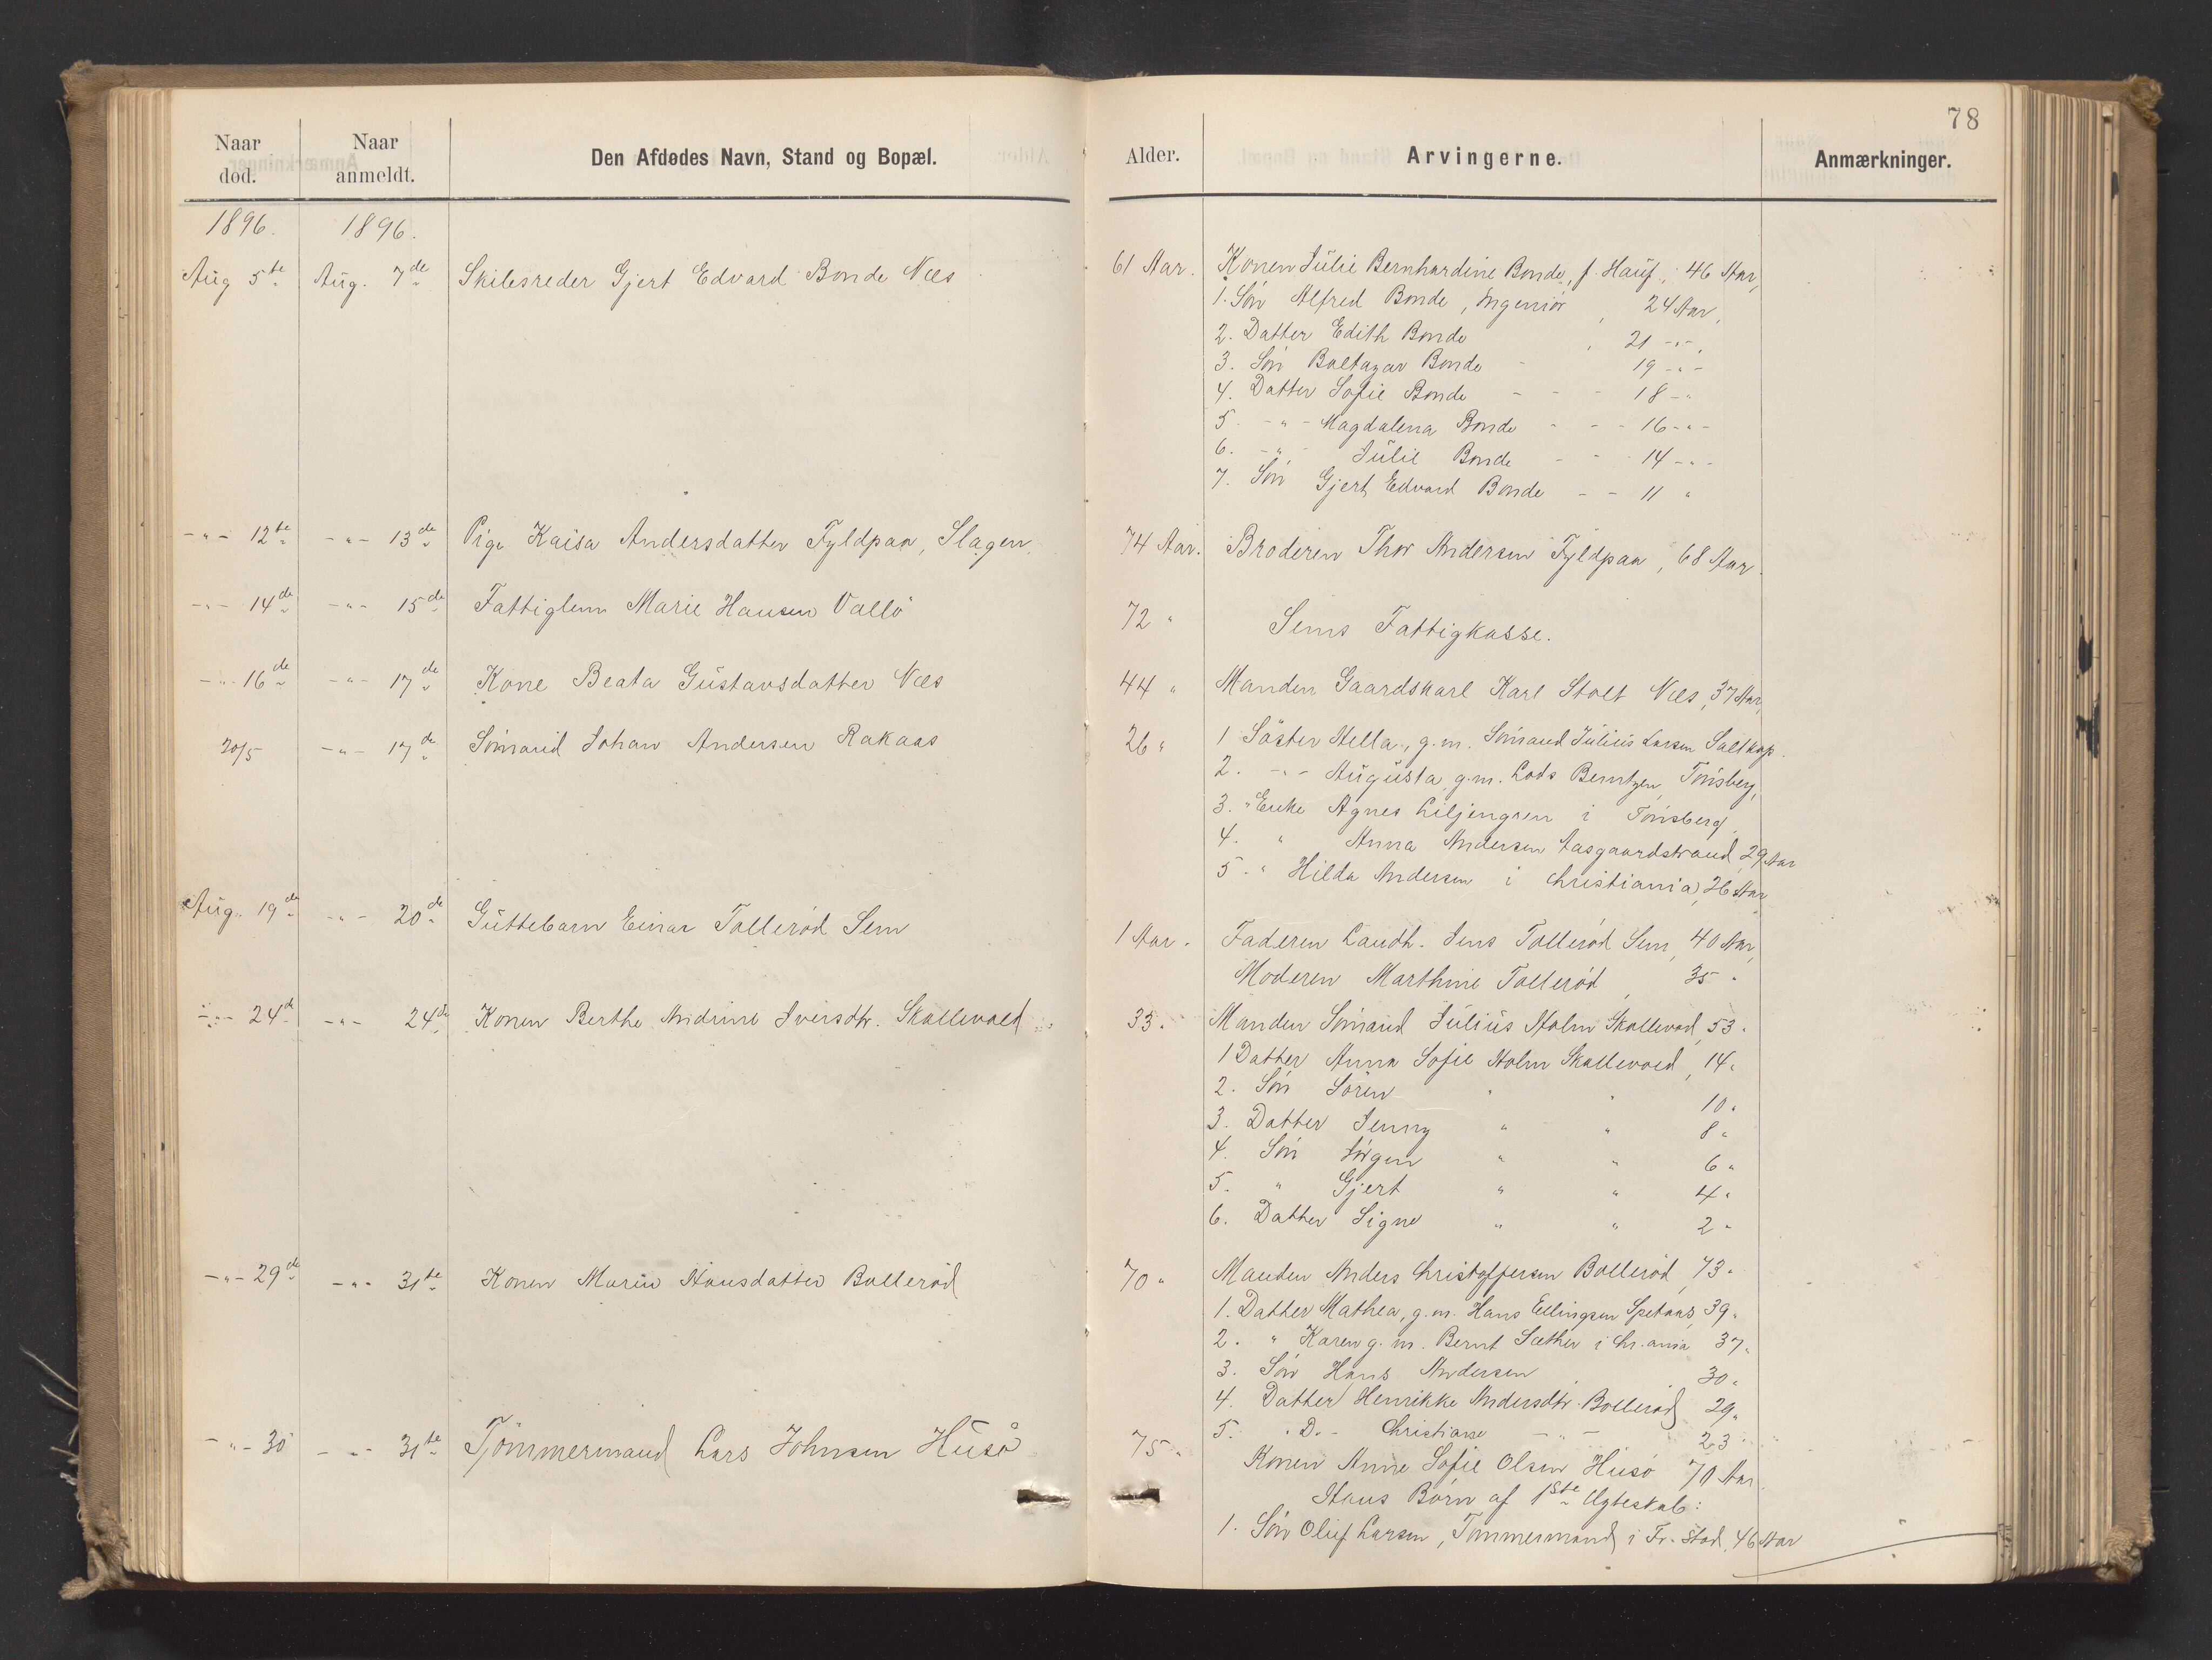 78
Naar død. Naar anmeldt. Den Afdødes Navn, Stand og Bopæl. Alder. Arvingerne. Anmærkninger.
1896. 1896.
Aug 5te Aug. 7de Skibsreder Gjert Edvard Bonde Næs 61 Aar. Konen Julie Bernhardine Bonde, f. Hauf, 46 Aar,
1. Søn Alfred Bonde, Ingeniør, 24 Aar,
2. Datter Edith Bonde, 21 -"-,
3. Søn Baltazar Bonde - 19 -"-
4. Datter Sofie Bonde - - - 18 -"
5. -"- Magdalena Bonde - - - 16 -"-
6. -"- Julie Bonde - - - 14 -"-
7. Søn Gjert Edvard Bonde - - 11 "
-"- 12te -"- 13de Pige Kaisa Andersdatter Fyldpaa, Slagen. 74 Aar. Broderen Thor Andersen Fyldpaa, 68 Aar.
-"- 14de -"- 15de Fattiglem Marie Hansen Vallö 72 " Sems Fattigkasse.
-"- 16de -"- 17de Kone Beata Gustavsdatter Næs 44 " Manden Gaardskarl Karl Stolt Næs, 37 Aar,
20/5 -"- 17de Sømand Johan Andersen Rakaas 26 " 1 Söster Hella, g.m. Sømand Julius Larsen Saltkop.
2. -"- Augusta g.m. Lods Berntzen, Tønsberg,
3. " Enke Agnes Liljengren i Tønsberg,
4. " Anna Andersen Aasgaardstrand, 29 Aar
5. " Hilda Andersen i Christiania, 26 Aar
Aug. 19de -"- 20de Guttebarn Einar Tollerød Sem 1 Aar. Faderen Landh. Jens Tollerød Sem, 40 Aar,
Moderen Marthine Tollerød, 35 "
-"- 24de -"- 24de Konen Berthe Andrine Iversdtr. Skallevold 33. Manden Sømand Julius Holm Skallevold, 53 "
1 Datter Anna Sofie Holm Skallevold, 14 "
2. Søn Sören " " 10 "
3. Datter Jenny " " 8 "
4. Søn Jörgen " " 6 "
5. " Gjert " " 4 "
6. Datter Signe " " 2 "
-"- 29de -"- 31te Konen Maria Hansdatter Bollerød 70 " Manden Anders Christoffersen Bollerød, 73 "
1. Datter Mathea, g.m. Hans Ellingsen Spetaas, 39 "
2. " Karen g.m. Bernt Sæther i Chr.ania 37 "
3. Søn Hans Andersen, 30 "
4. Datter Henrikke Andersdtr. Bollerød 29 "
5. " D.- Christiane -"- 23 "
-"- 30 -"- 31te Tømmermand Lars Johnsen Husø 75 " Konen Anne Sofie Olsen Husø 70 Aar.
Hans Børn af 1ste Ægteskab:
1. Søn Oluf Larsen, Tømmermand i Fr.stad, 46 Aar